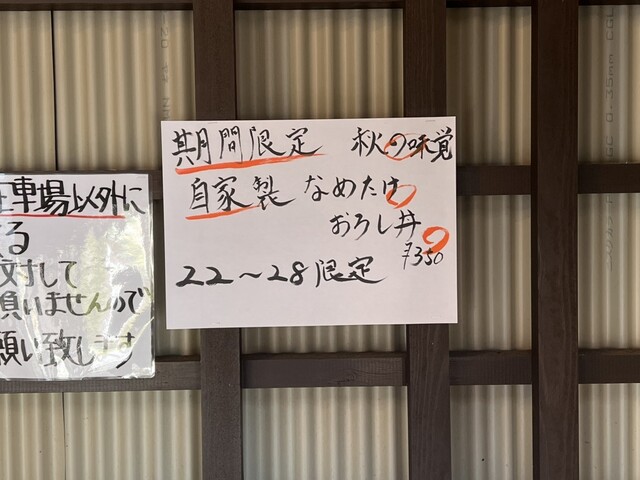 期間限定 秋の味覚
自家製 なめたけ
おろし丼
¥350
22～28限定
車場以外に
る
対して
負いませんので
願い致します